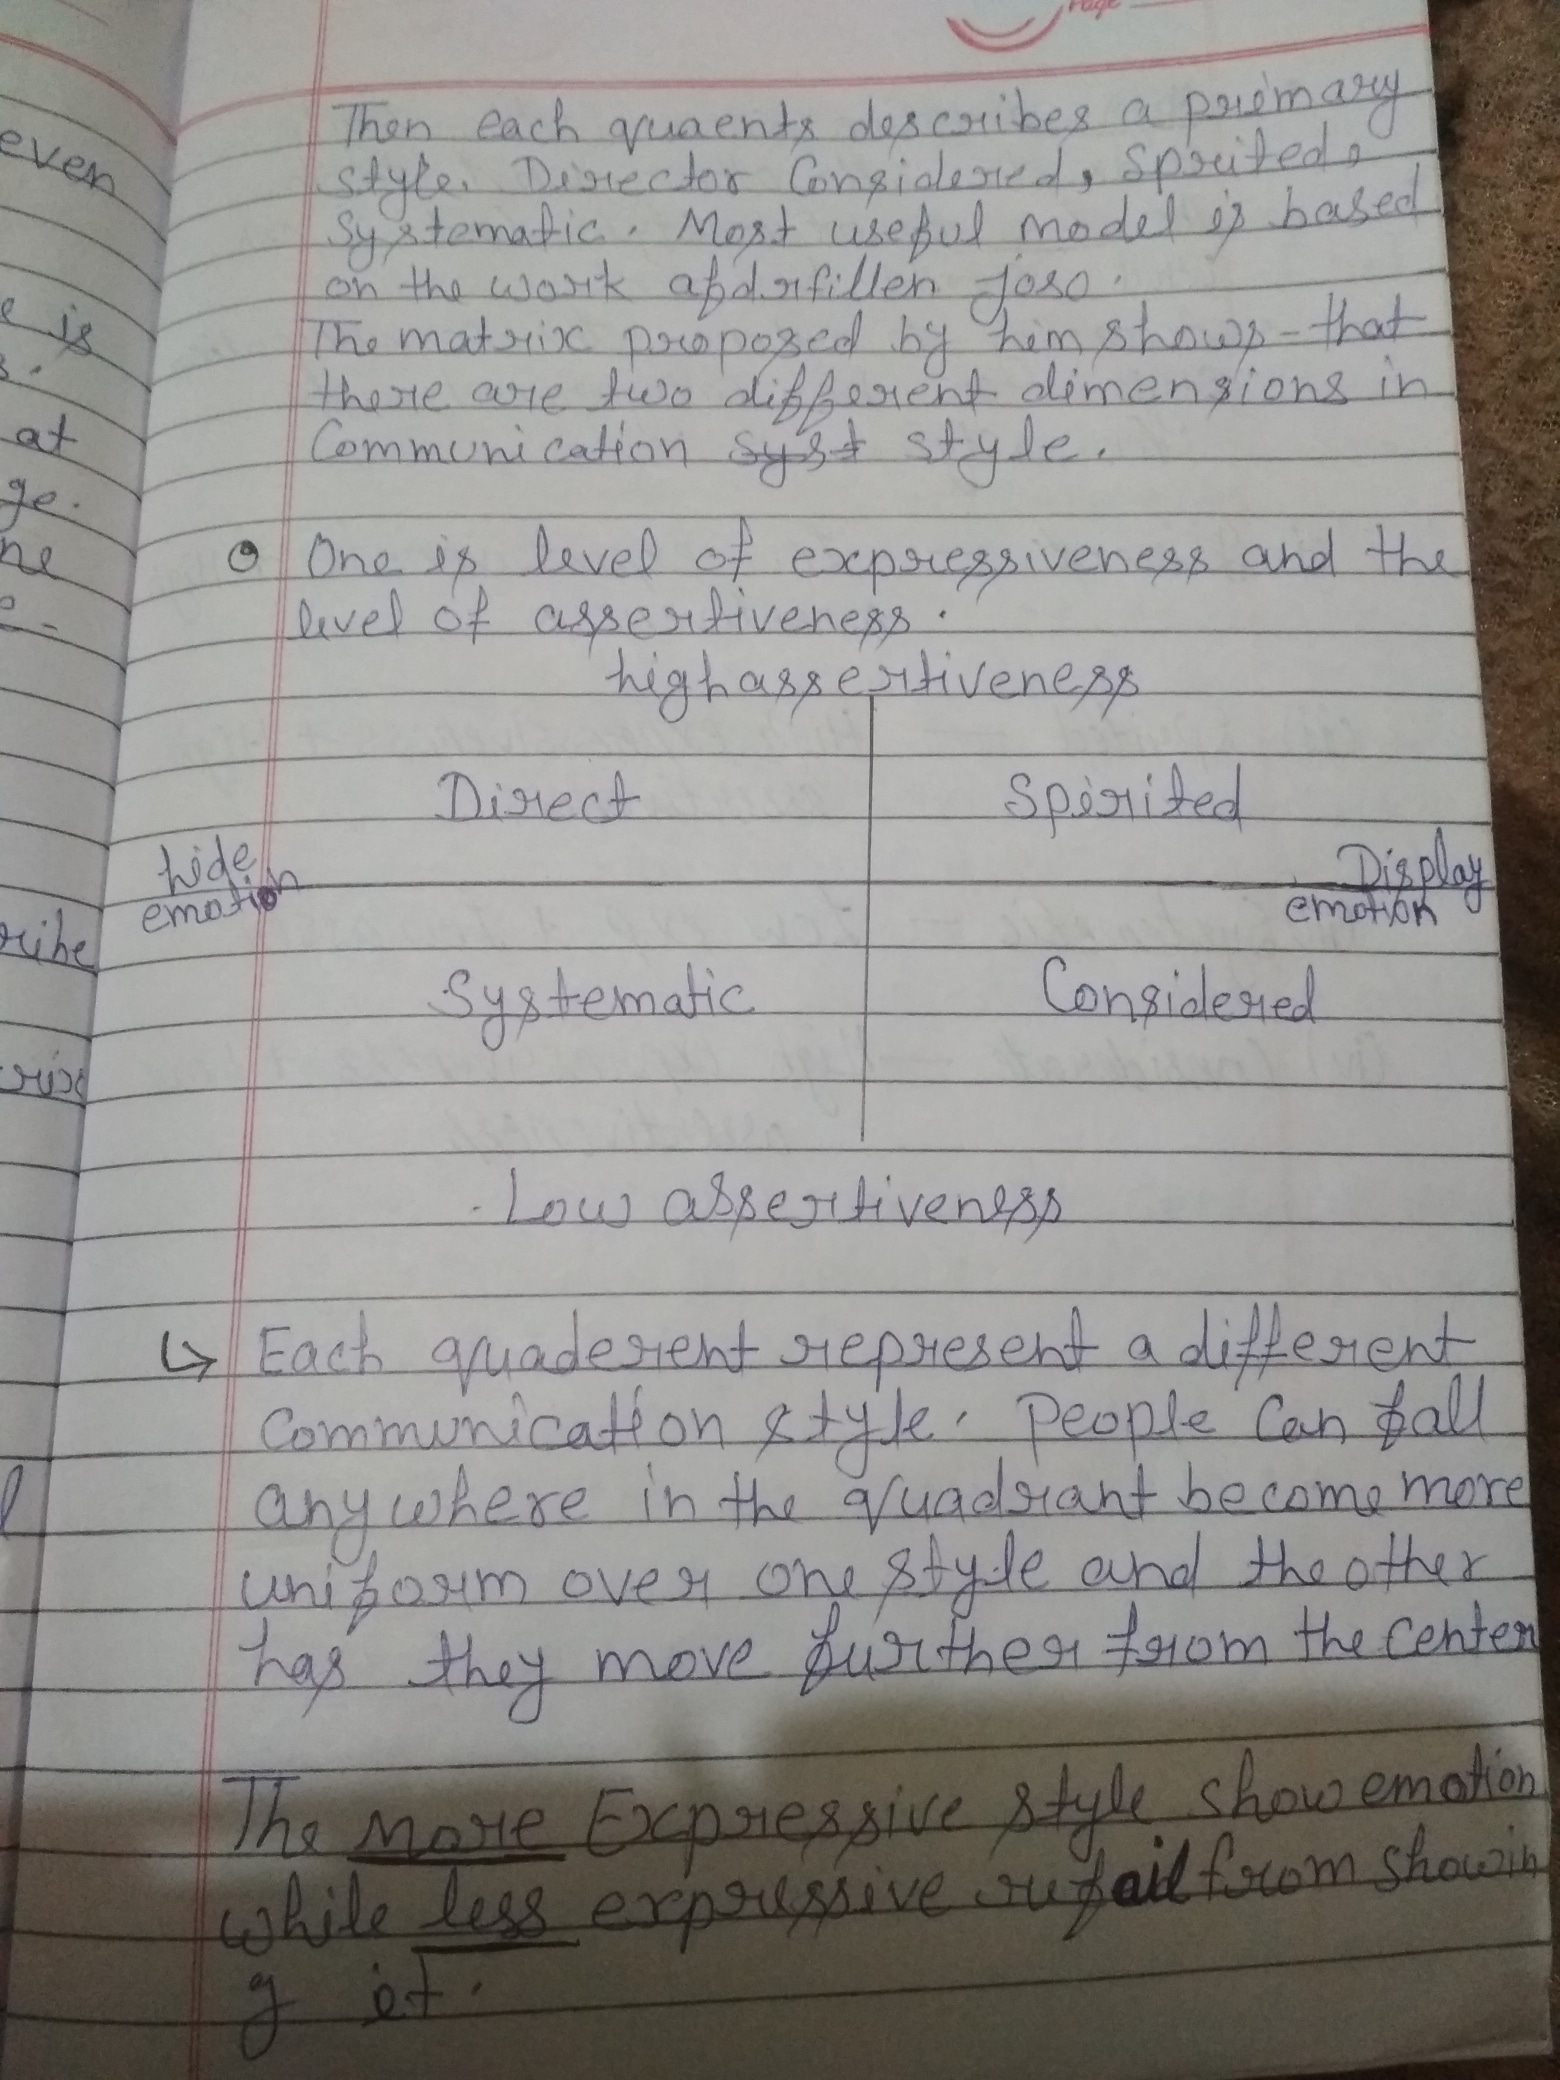 Page
Then each quaents describes a primary
style. Director Considered, Sprited,
Systematic. Most useful model is based
on the work
The matrix proposed by him shows that
there are two different dimensions in
Communication syst style.
One is level of expressiveness and the
level of assertiveness.
high assertiveness
Direct Spirited
hide Display
emotion emotion
Systematic Considered
Low assertiveness
↳ Each quaderent represent a different
Communication style. People Can fall
any where in the quadrant become more
uniform over one style and the other
has they move further from the center
The more Expressive style show emotion
while less expressive refail from showin
g it.
even
e is
s.
at
ge.
ne
e-
ribe
rix